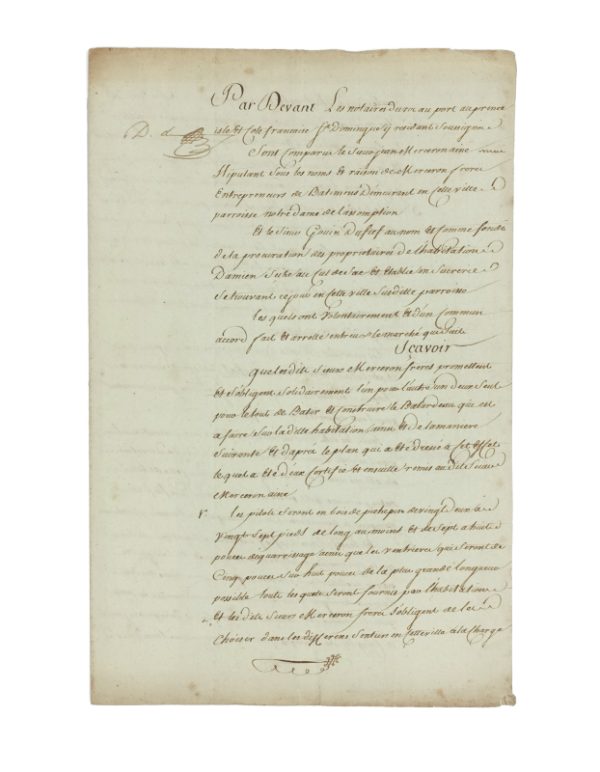 Par Devant Les notaires du roi au port au prince
isle et Cote francaise St Domingue y residant soussignés
D. d
Sont Comparu le Sieur jean Merceron ainé
Stipulant sous les noms et raison de Merceron freres
Entrepreneurs de Batiments Demeurant en cette ville
parroisse notre dame de l'assomption
Et le Sieur Gouin Dufief au nom et comme fondé
de la procuration des proprietaires de l'habitation
Damien Scize au Cul de Sac et Etablie en Sucrerie
Se trouvant ce jour en cette ville Susditte parroisse
Les quels ont Volontairement et d'un Commun
accord fait et arretté entre eux le marché qui suit
Sçavoir
que lesdits Sieurs Merceron freres promettent
et s'obligent solidairement l'un pour l'autre un deux seul
pour le tout de Batir et Construire le Batardeau qui est
a faire sur la ditte habitation ainsi et de la maniere
suivante et d'apres le plan qui a eté dressé a cet Effet
lequel a eté d'eux Certifié et ensuitte remis audit Sieur
Merceron ainé
les pilots seront en bois de pichepin de vingt six à
Vingt Sept pieds de long au moins et de sept a huit
pouces d'equarrissage ainsi que les ventrieres qui seront de
Cinq pouces sur huit pouces de la plus grande longueur
possible toute les quels seront fournis par l'habitation
et lesdits Sieurs Merceron freres s'obligent de les
Choisir dans les differens en cette ville à la Charge